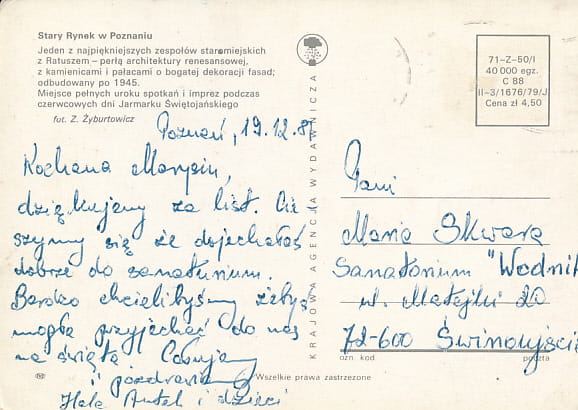 Stary Rynek w Poznaniu
Jeden z najpiękniejszych zespołów staromiejskich
z Ratuszem – perłą architektury renesansowej,
z kamienicami i pałacami o bogatej dekoracji fasad;
odbudowany po 1945.
Miejsce pełnych uroku spotkań i imprez podczas
czerwcowych dni Jarmarku Świętojańskiego
fot. Z. Żyburtowicz
Poznań, 19.12.8
Kochana Marysiu,
dziękujemy za list. Cie
szymy się że dojechałaś
dobrze do sanatorium.
Bardzo chcielibyśmy żebyś
mogła przyjechać do nas
na święta. Całujemy
i pozdrawiamy
Hela Antek i dzieci
KRAJOWA AGENCJA WYDAWNICZA
71-Z-50/I
40 000 egz.
C 88
II-3/1676/79/J
Cena zł 4,50
Pani
Maria Skwara
Sanatorium "Wodnik
ul. Matejki 20
72-600 Świnoujście
ozn. kod poczta
Wszelkie prawa zastrzeżone